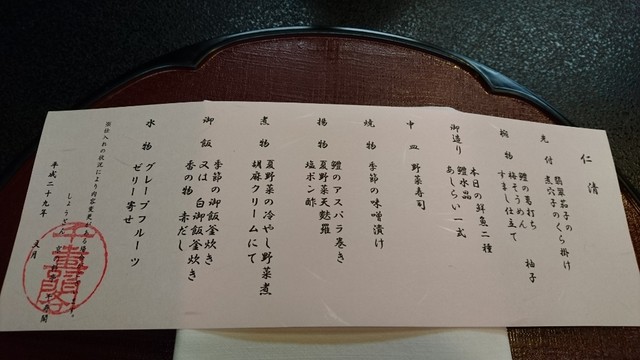 仁清
先付 翡翠茄子の
煮穴子のくら掛け
椀物 鱧の葛打ち 柚子
梅そうめん
すまし仕立て
御造り 本日の鮮魚二種
鱧水晶
あしらい一式
中皿 野菜寿司
焼物 季節の味噌漬け
揚物 鱧のアスパラ巻き
夏野菜天麩羅
塩ポン酢
煮物 夏野菜の冷やし野菜煮
胡麻クリームにて
御飯 季節の御飯釜炊き
又は 白御飯釜炊き
香の物 赤だし
水物 グレープフルーツ
ゼリー寄せ
仕入れの状況により内容変更
平成二十九年 五月
しょうざん
千寿閣